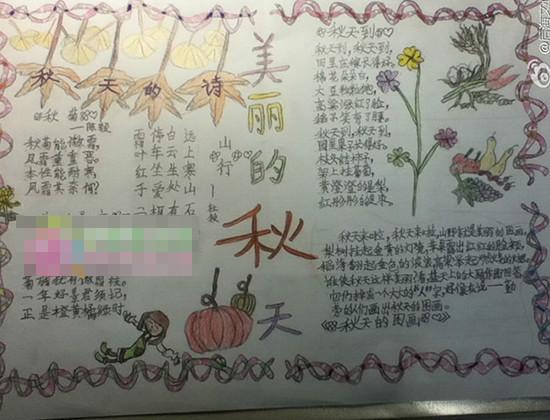 美丽的秋天
秋天的诗
秋菊
——陈毅
秋菊能傲霜,
风霜重重恶。
本性能耐寒,
风霜其奈何?
山行
——杜牧
远上寒山石
白云生处有
停车坐爱
霜叶红于
一年好景君须记,
正是橙黄橘绿时。
秋天到
秋天到,秋天到,
田里庄稼长得好,
棉花朵朵白,
大豆粒粒饱,
高粱涨红了脸,
稻子笑弯了腰。
秋天到,秋天到,
园里果子长得好,
枝头结柿子,
架上挂葡萄,
黄澄澄的是梨,
红彤彤的是枣。
秋天来啦,秋天来啦,山野就是美丽的图画。
梨树挂起金黄的灯笼,苹果露出红红的脸颊,
稻海翻起金色的波浪,高粱举起燃烧的火把。
谁使秋天这样美丽?看,蓝天上的大雁作出回答,
它们排成一个大大的“人”字,好像在说——勤
劳的人们画出秋天的图画。
秋天的图画